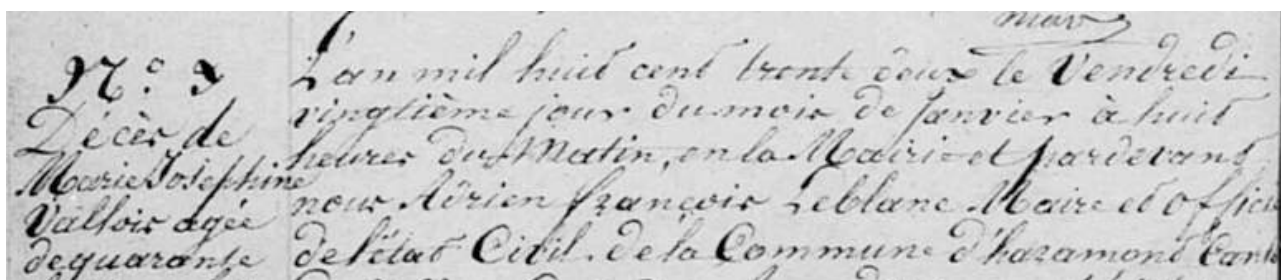 N.º 3
Décès de
Marie Josephine
Vallois agée
de quarante
mar
L'an mil huit cent trente deux le Vendredi
vingtième jour du mois de Janvier à huit
heures du Matin, en la Mairie et pardevant
nous Adrien françois Leblanc Maire et offici
de l'état Civil de la Commune d'haramont Cant